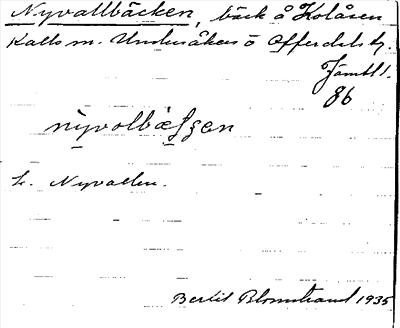 Nyvallbäcken, bäck å Kolåsen
Kalls m. Undersåkers o Offerdals tg.
Jämtl.
86
nyvolbæʃʒen
L. Nyvallen.
Bertil Blomstrand 1935